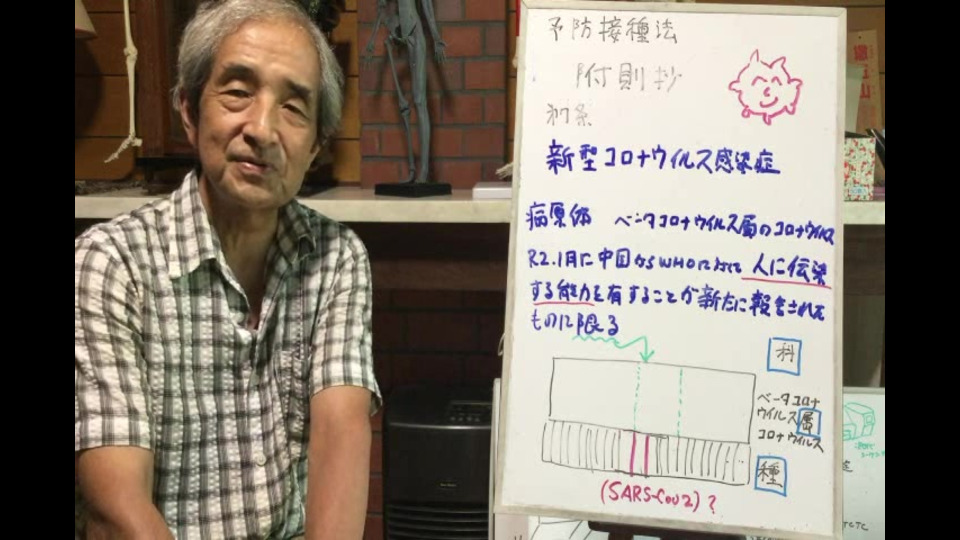 予防接種法
附則抄
新型コロナウイルス感染症
病原体 ベータコロナウイルス属のコロナウイルス
R2.1月に中国からWHOに対して人に伝染
する能力を有することが新たに報告された
ものに限る
科
ベータコロナ
ウイルス属
コロナウイルス
種
(SARS-CoV2)?